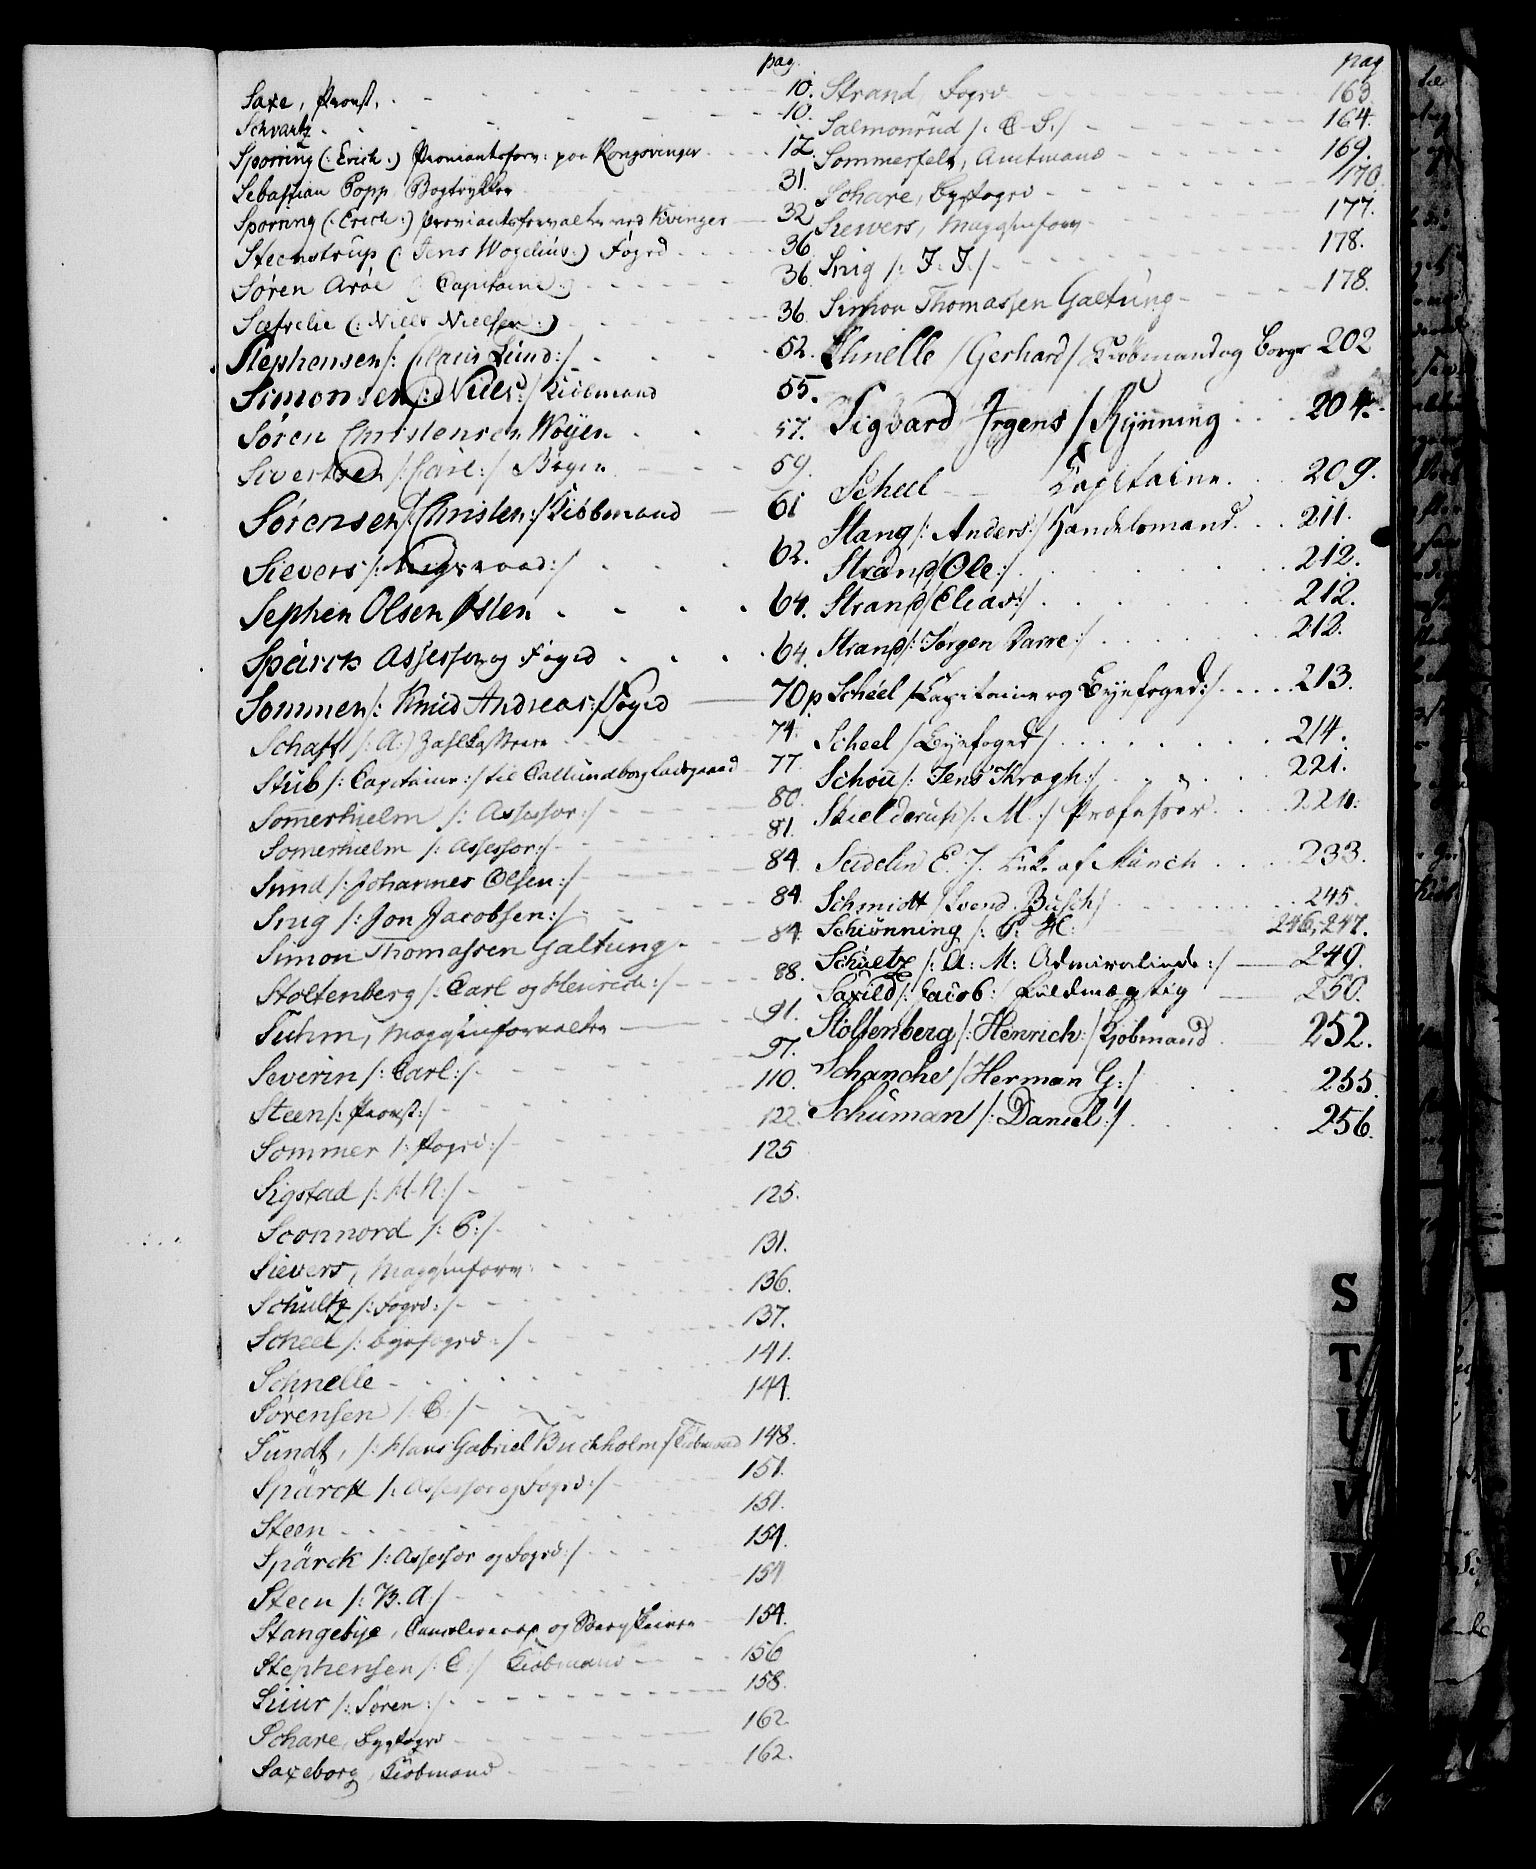 pag.
Saxe, Provst, 10.
Schvartz 10.
Sporring (: Erich :) Proviantsforv: paa Kongsvinger 12.
Sebastian Popp, Bogtrykker 31.
Sporring (: Erich :) Proviantsforvalter ved Kvinger 32
Steenstrup (: Jens Wogelius :) Foged 36
Søren Aröe (: Capitaine :) 36.
Sæfselie (: Niels Nielsen :) 36.
Stephensen /: Claus Lund :/ 52.
Simonsen /: Niels :/ Kiøbmand 55.
Søren Christensen Wöyen 57.
Sivertsen /: Carl :/ 59.
Sørensen /: Christen :/ Kiøbmand 61
Sievers /: Krigsraad :/ 62.
Sephen Olsen Østen 64.
Spärck Assessor og Foged 64.
Sommer /: Knud Andreas :/ Foged 70
Schafft /: A :/ Zahlkasserer 74.
Stub /: Capitaine :/ til Callundborg Ladegaard 77
Somerhielm /: Assessor :/ 80.
Somerhielm /: Assessor :/ 81.
Sund /: Johannes Olsen :/ 84.
Snig /: Jon Jacobsen :/ 84.
Simon Thomassen Galtung 84.
Stoltenberg /: Carl og Henrich :/ 88.
Suhm, Magazinforvalter 91.
Severin /: Carl :/ 97.
Steen /: Provst :/ 110.
Sommer /: Foged :/ 122.
Sigstad /: H. N :/ 125
Sconnord /: P :/ 125.
Sievers, Magazinforv: 131.
Schultz /: Foged :/ 136.
Scheel /: Byefoged :/ 137.
Schnelle 141.
Sørensen /: C :/ 144.
Sundt, /: Hans Gabriel Buchholm / Kiøbmand 148.
Spärck /: Assessor og Foged :/ 151.
Steen 151.
Spärck /: Assessor og Foged :/ 154.
Steen /: B. A / 154
Stangebye, Cancelieraad og Bergskriver 154.
Stephensen /: C :/ Kiøbmand 156
Suur /: Søren :/ 158.
Schare, Byefoged 162.
Saxeborg, Kiøbmand 162.
pag
Strand, Foged 163.
Salmonrud /: C. S :/ 164.
Sommerfelt, Amtmand 169.
Schare, Byefoged 170.
Siewers, Magazinforv 177.
Snig /: J. J. / 178.
Simon Thomassen Galtung 178.
Schnelle / Gerhard / Kiøbmand og Borger 202
Sigvard Irgens / Rynning 204.
Scheel Capitaine 209.
Stang /: Anders :/ Handelsmand 211.
Strand / Ole :/ 212.
Strand / Elias :/ 212.
Strand /: Jørgen Darre :/ 212.
Scheel / Capitaine og Byefoged :/ 213.
Scheel / Byefoged / 214.
Schou /: Jens Kragh :/ 221.
Skielderup /: M. :/ Professor 224.
Seidelin E. J. Enke af Münch 233.
Schmidt / Svend Busch / 245.
Schiønning /: P: H: 246, 247.
Schultz /: A: M: Admiralinde :/ 249.
Saxild /: Jacob : Fuldmægtig 250.
Stoltenberg /: Henrich :/ Kjøbmand 252.
Schanche / Herman G :/ 255.
Schuman /: Daniel :/ 256.
S
T
U
V